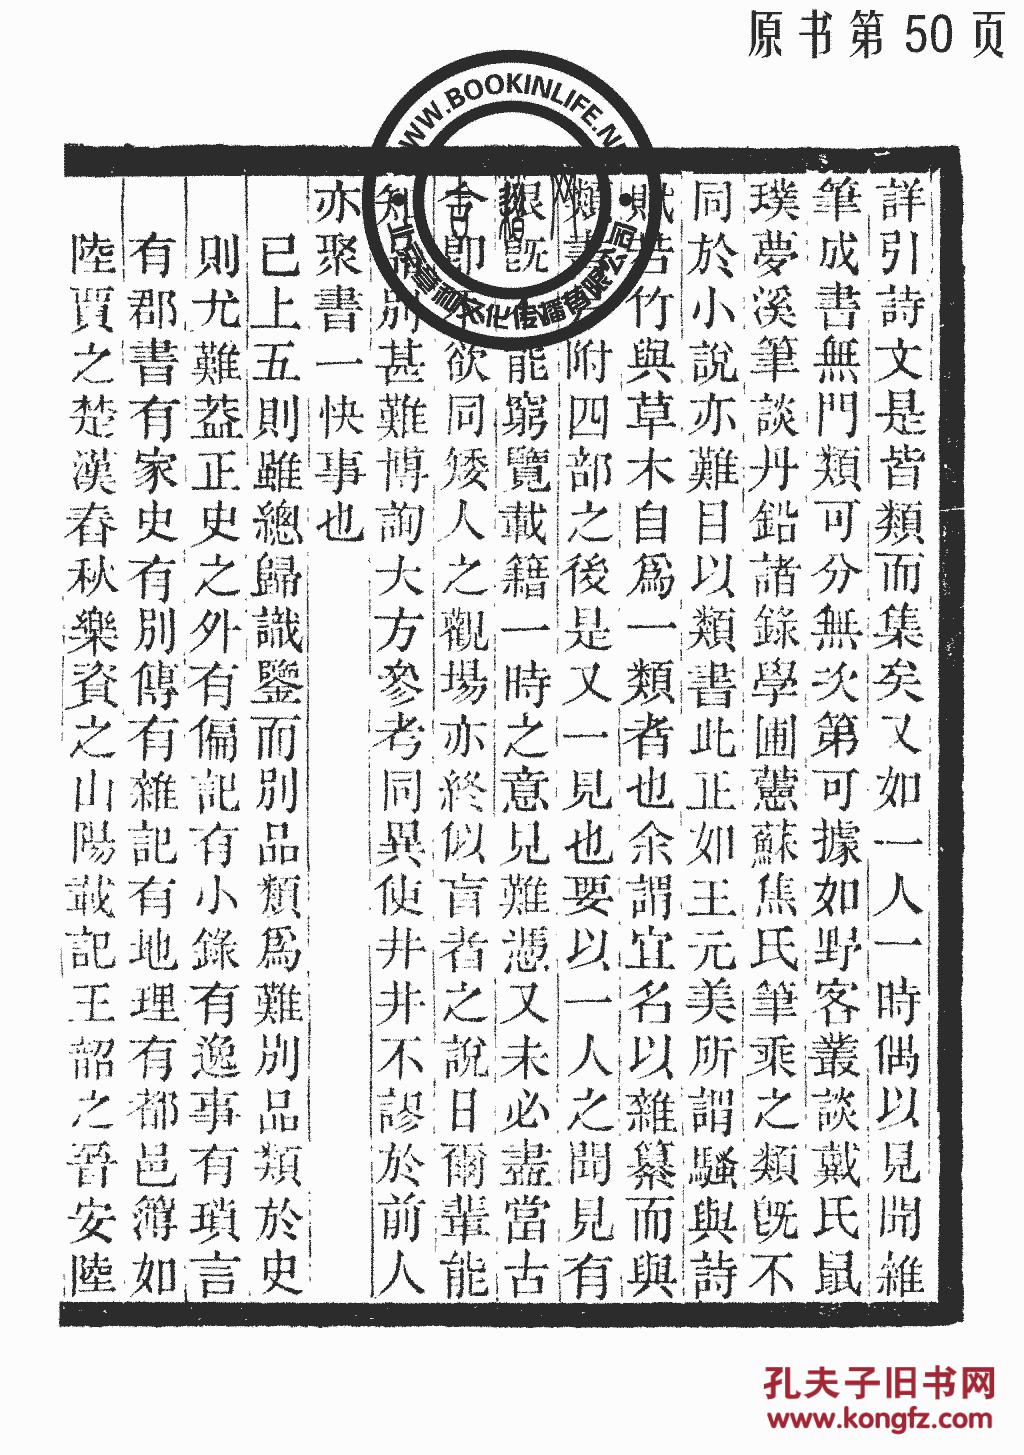 原书第50页
WWW.BOOKINLIFE.N
詳引詩文是皆類而集矣又如一人一時偶以見聞雑
筆成書無門類可分無次第可據如野客叢談戴氏鼠
璞夢溪筆談丹鉛諸錄學圃蘐蘇焦氏筆乘之類旣不
同於小說亦難目以類書此正如王元美所謂騷與詩
賦若竹與草木自爲一類者也余謂宜名以雜纂而與
類書附四部之後是又一見也要以一人之聞見有
限旣能窮覽載籍一時之意見難憑又未必盡當古
含即欲同矮人之觀場亦終似盲者之說日爾輩能
知別甚難博詢大方參考同異使井井不謬於前人
亦聚書一快事也
已上五則雖總歸識鑒而別品類爲難別品類於史
則尤難葢正史之外有偏記有小錄有逸事有瑣言
有郡書有家史有別傳有雜記有地理有都邑簿如
陸賈之楚漢春秋樂資之山陽載記王韶之晉安陸
孔夫子旧书网
www.kongfz.com